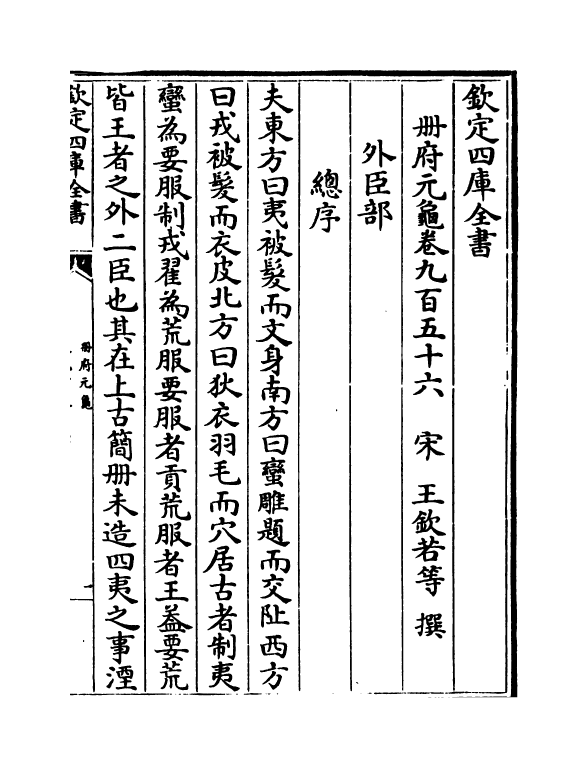 欽定四庫全書
冊府元龜卷九百五十六 宋 王欽若等 撰
外臣部
總序
夫東方曰夷被髮而文身南方曰蠻雕題而交趾西方
曰戎被髮而衣皮北方曰狄衣羽毛而穴居古者制夷
蠻為要服制戎翟為荒服要服者貢荒服者王葢要荒
皆王者之外二臣也其在上古簡冊未造四夷之事湮
欽定四庫全書
冊府元龜